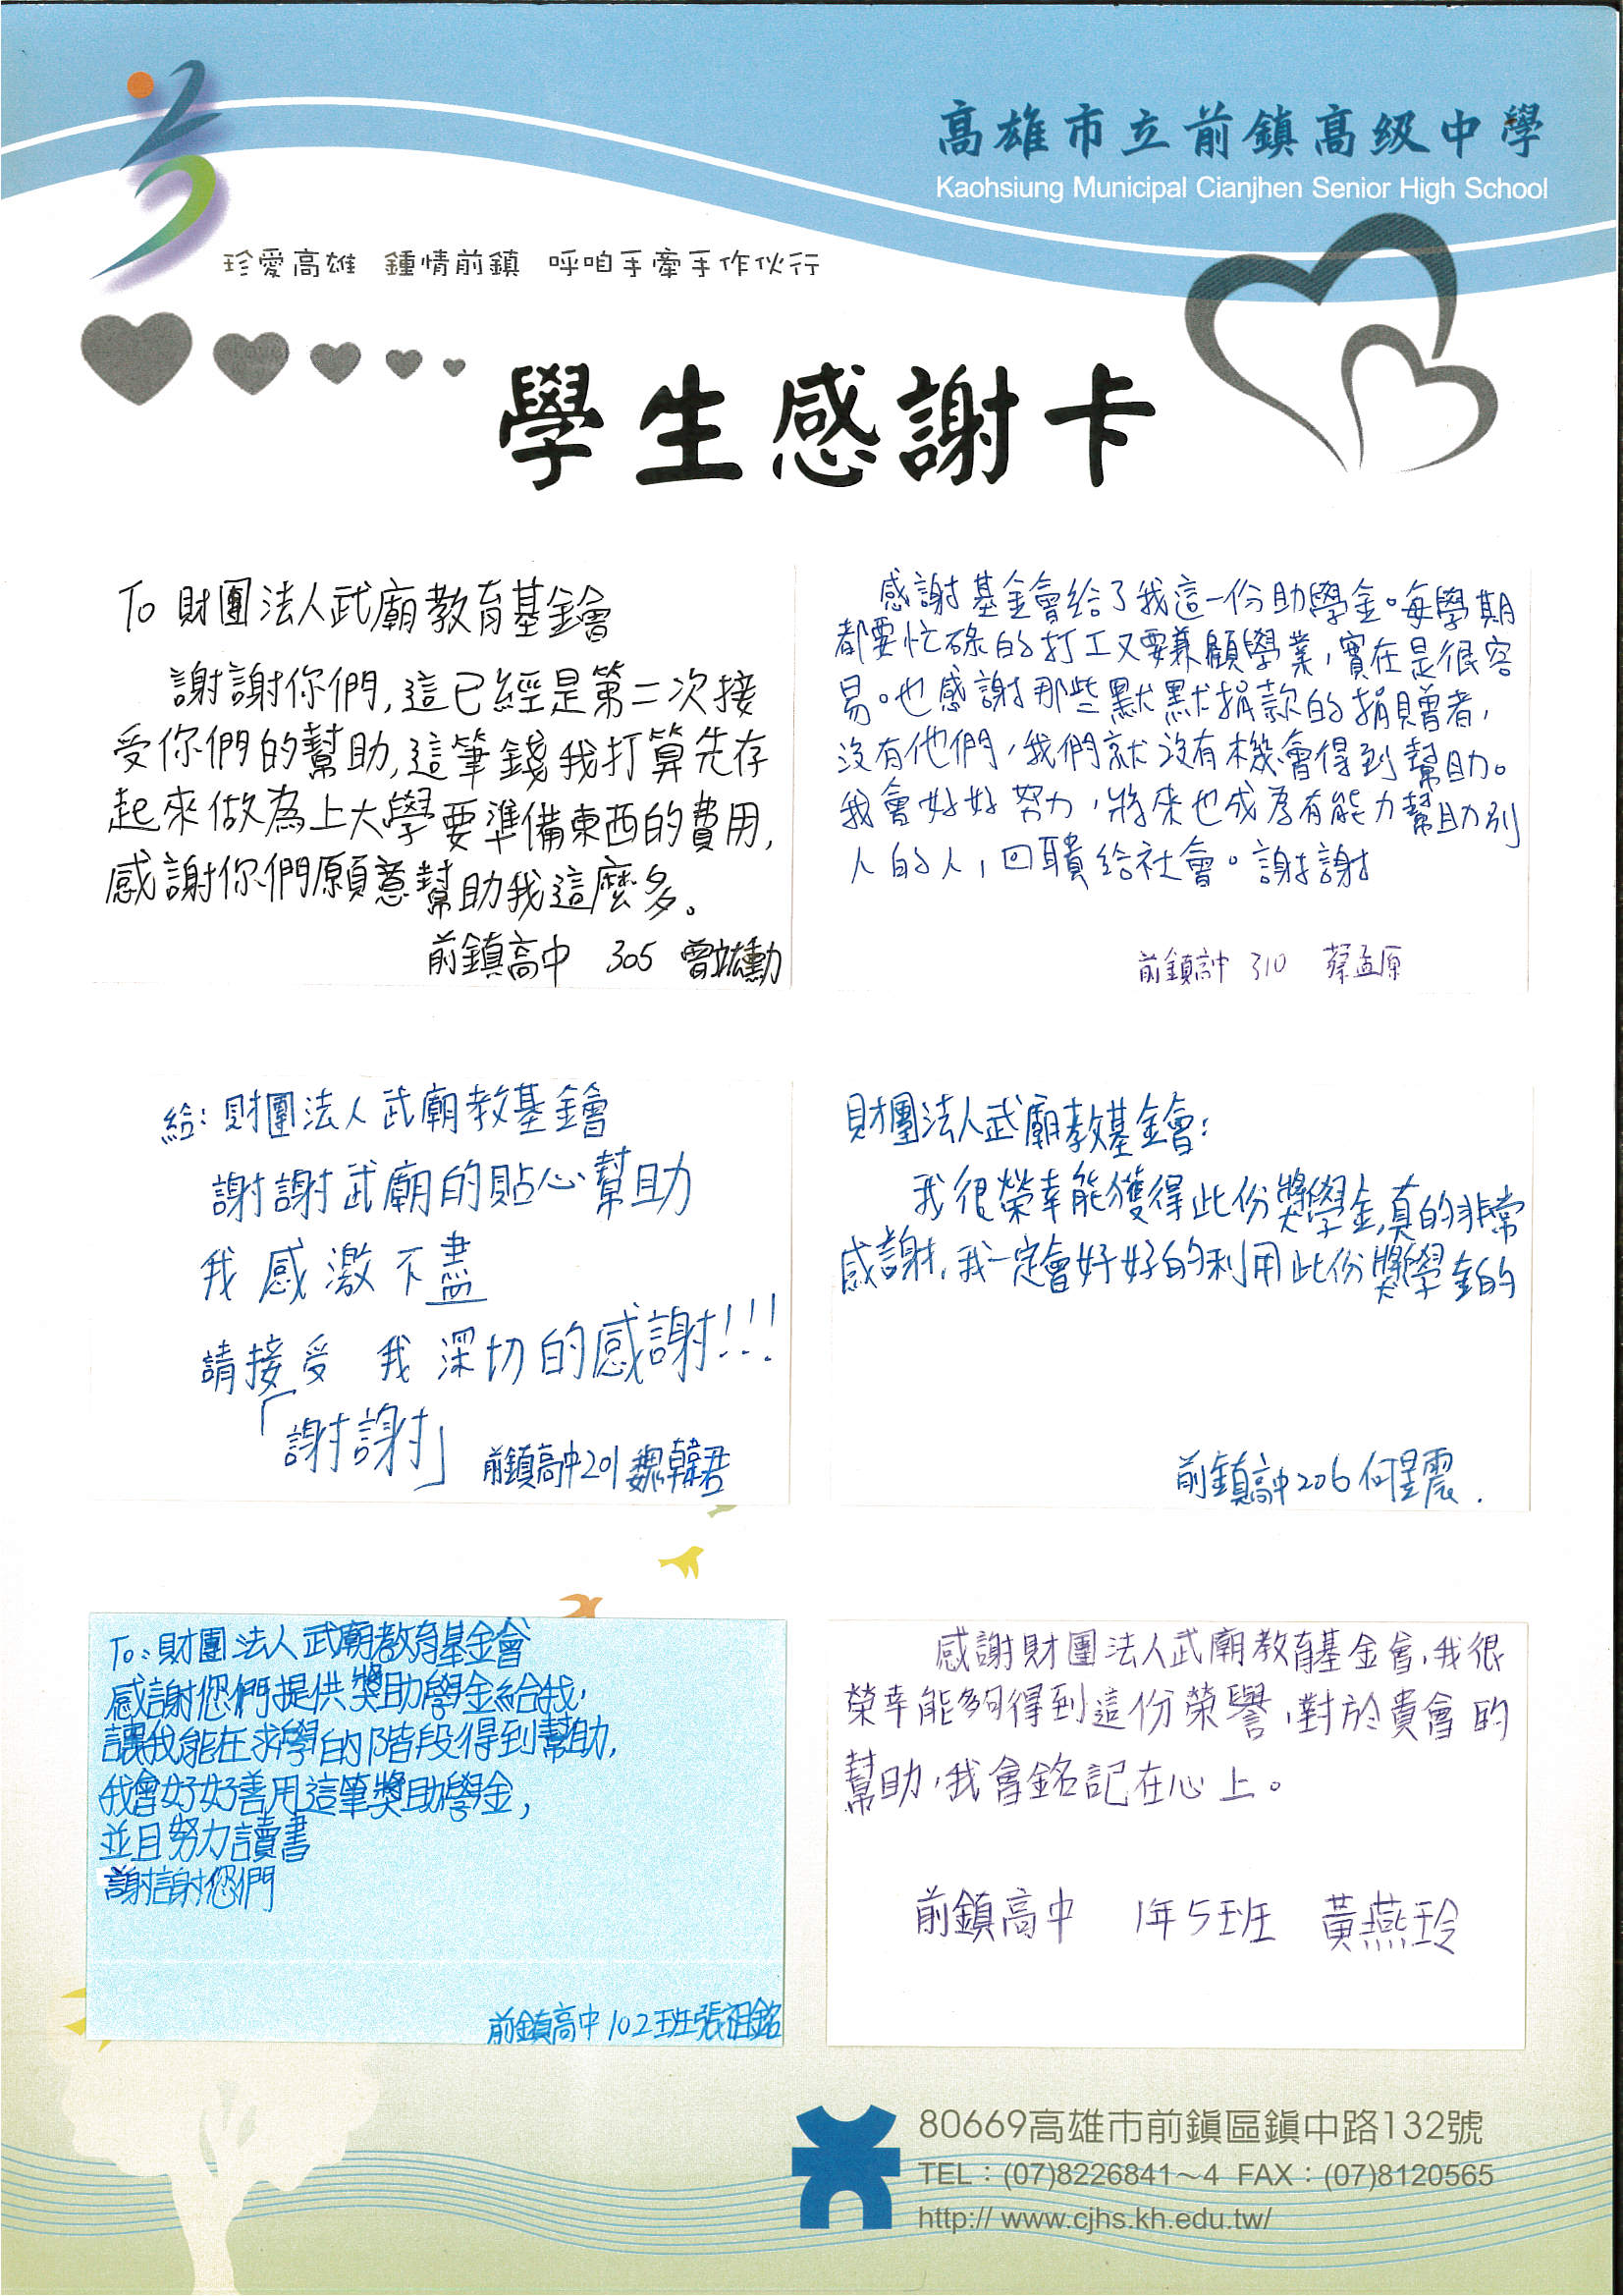 高雄市立前鎮高級中學
Kaohsiung Municipal Cianjhen Senior High School
珍愛高雄 鍾情前鎮 呼咱手牽手作伙行
學生感謝卡
To 財團法人武廟教育基金會
謝謝你們,這已經是第二次接
受你們的幫助,這筆錢我打算先存
起來做為上大學要準備東西的費用,
感謝你們願意幫助我這麼多。
前鎮高中 305 曾竑勳
感謝基金會給了我這一份助學金。每學期
都要忙碌的打工又要兼顧學業,實在是很容
易。也感謝那些默默捐款的捐贈者,
沒有他們,我們就沒有機會得到幫助。
我會好好努力,將來也成為有能力幫助別
人的人,回饋給社會。謝謝
前鎮高中 310 蔡孟原
給:財團法人武廟教基金會
謝謝武廟的貼心幫助
我感激不盡
請接受 我深切的感謝!!!
「謝謝」
前鎮高中201 魏韓君
財團法人武廟教基金會:
我很榮幸能獲得此份獎學金,真的非常
感謝,我一定會好好的利用此份獎學金的
前鎮高中206 何昱震.
To:財團法人武廟教育基金會
感謝您們提供獎助學金給我,
讓我能在求學的階段得到幫助,
我會好好善用這筆獎助學金,
並且努力讀書
謝謝您們
前鎮高中102班張祖銘
感謝財團法人武廟教育基金會,我很
榮幸能夠得到這份榮譽,對於貴會的
幫助,我會銘記在心上。
前鎮高中 1年5班 黃燕玲
80669高雄市前鎮區鎮中路132號
TEL:(07)8226841~4 FAX:(07)8120565
http:// www.cjhs.kh.edu.tw/